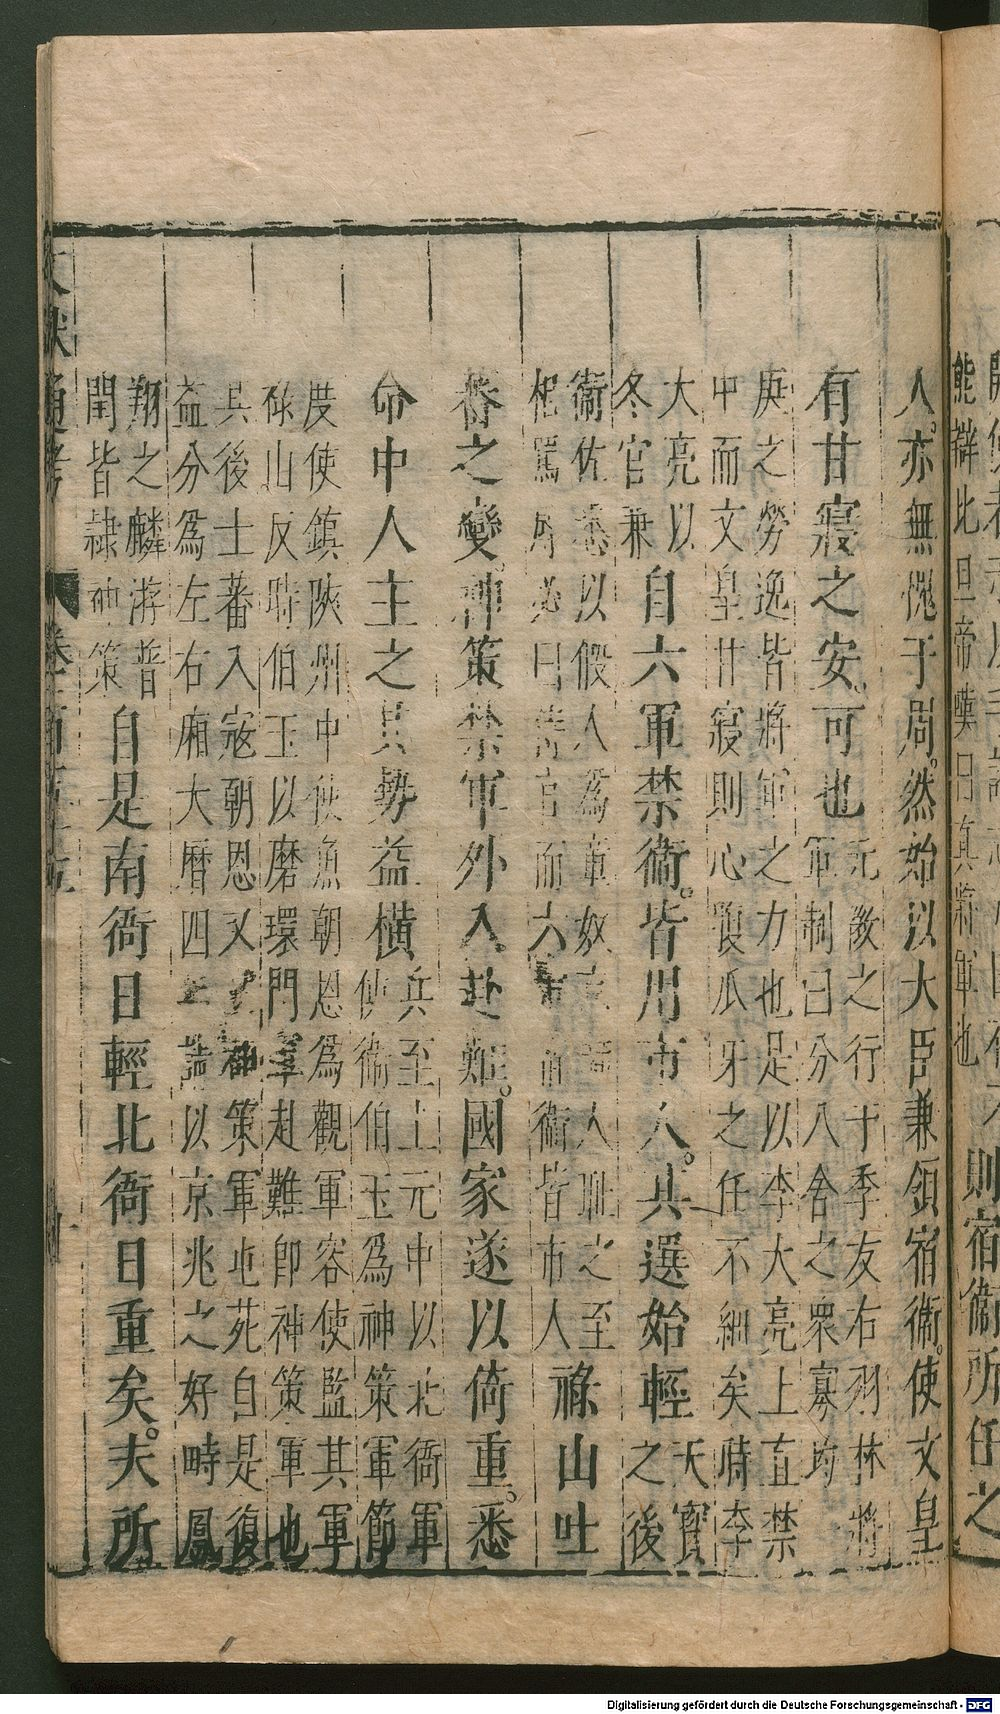 熊辯比旦帝嘆曰真將軍也
則宿衞所任之
人亦無愧于周然始以大臣兼領宿衞使文皇
有甘寢之安可也
元敎之行于季友右羽林將
軍制曰分八舍之眾寡均
庚之勞逸皆將軍之力也足以李大亮上直禁
中而文皇甘寢則心腹瓜牙之任不細矣時李
大亮以
冬官兼
自六軍禁衞皆用市人其選始輕
天寶
之後
衞佐悉以假人為童奴京師人耻之至
相罵辱必曰侍官而六軍宿衞皆市人
祿山吐
蕃之變神策禁軍外入赴難國家遂以倚重悉
命中人主之其勢益橫
兵至上元中以北衙軍
使衞伯玉為神策軍節
度使鎮陝州中使魚朝恩為觀軍容使監其軍
祿山反時伯玉以磨環門軍赴難即神策軍也
其後士蕃入寇朝恩又以神策軍屯苑自是復
益分為左右廂大曆四年請以京兆之好畤鳳
翔之麟游普
閏皆隸神策
自是南衙日輕北衙日重矣夫所
文獻通考
Digitalisierung gefördert durch die Deutsche Forschungsgemeinschaft - DFG